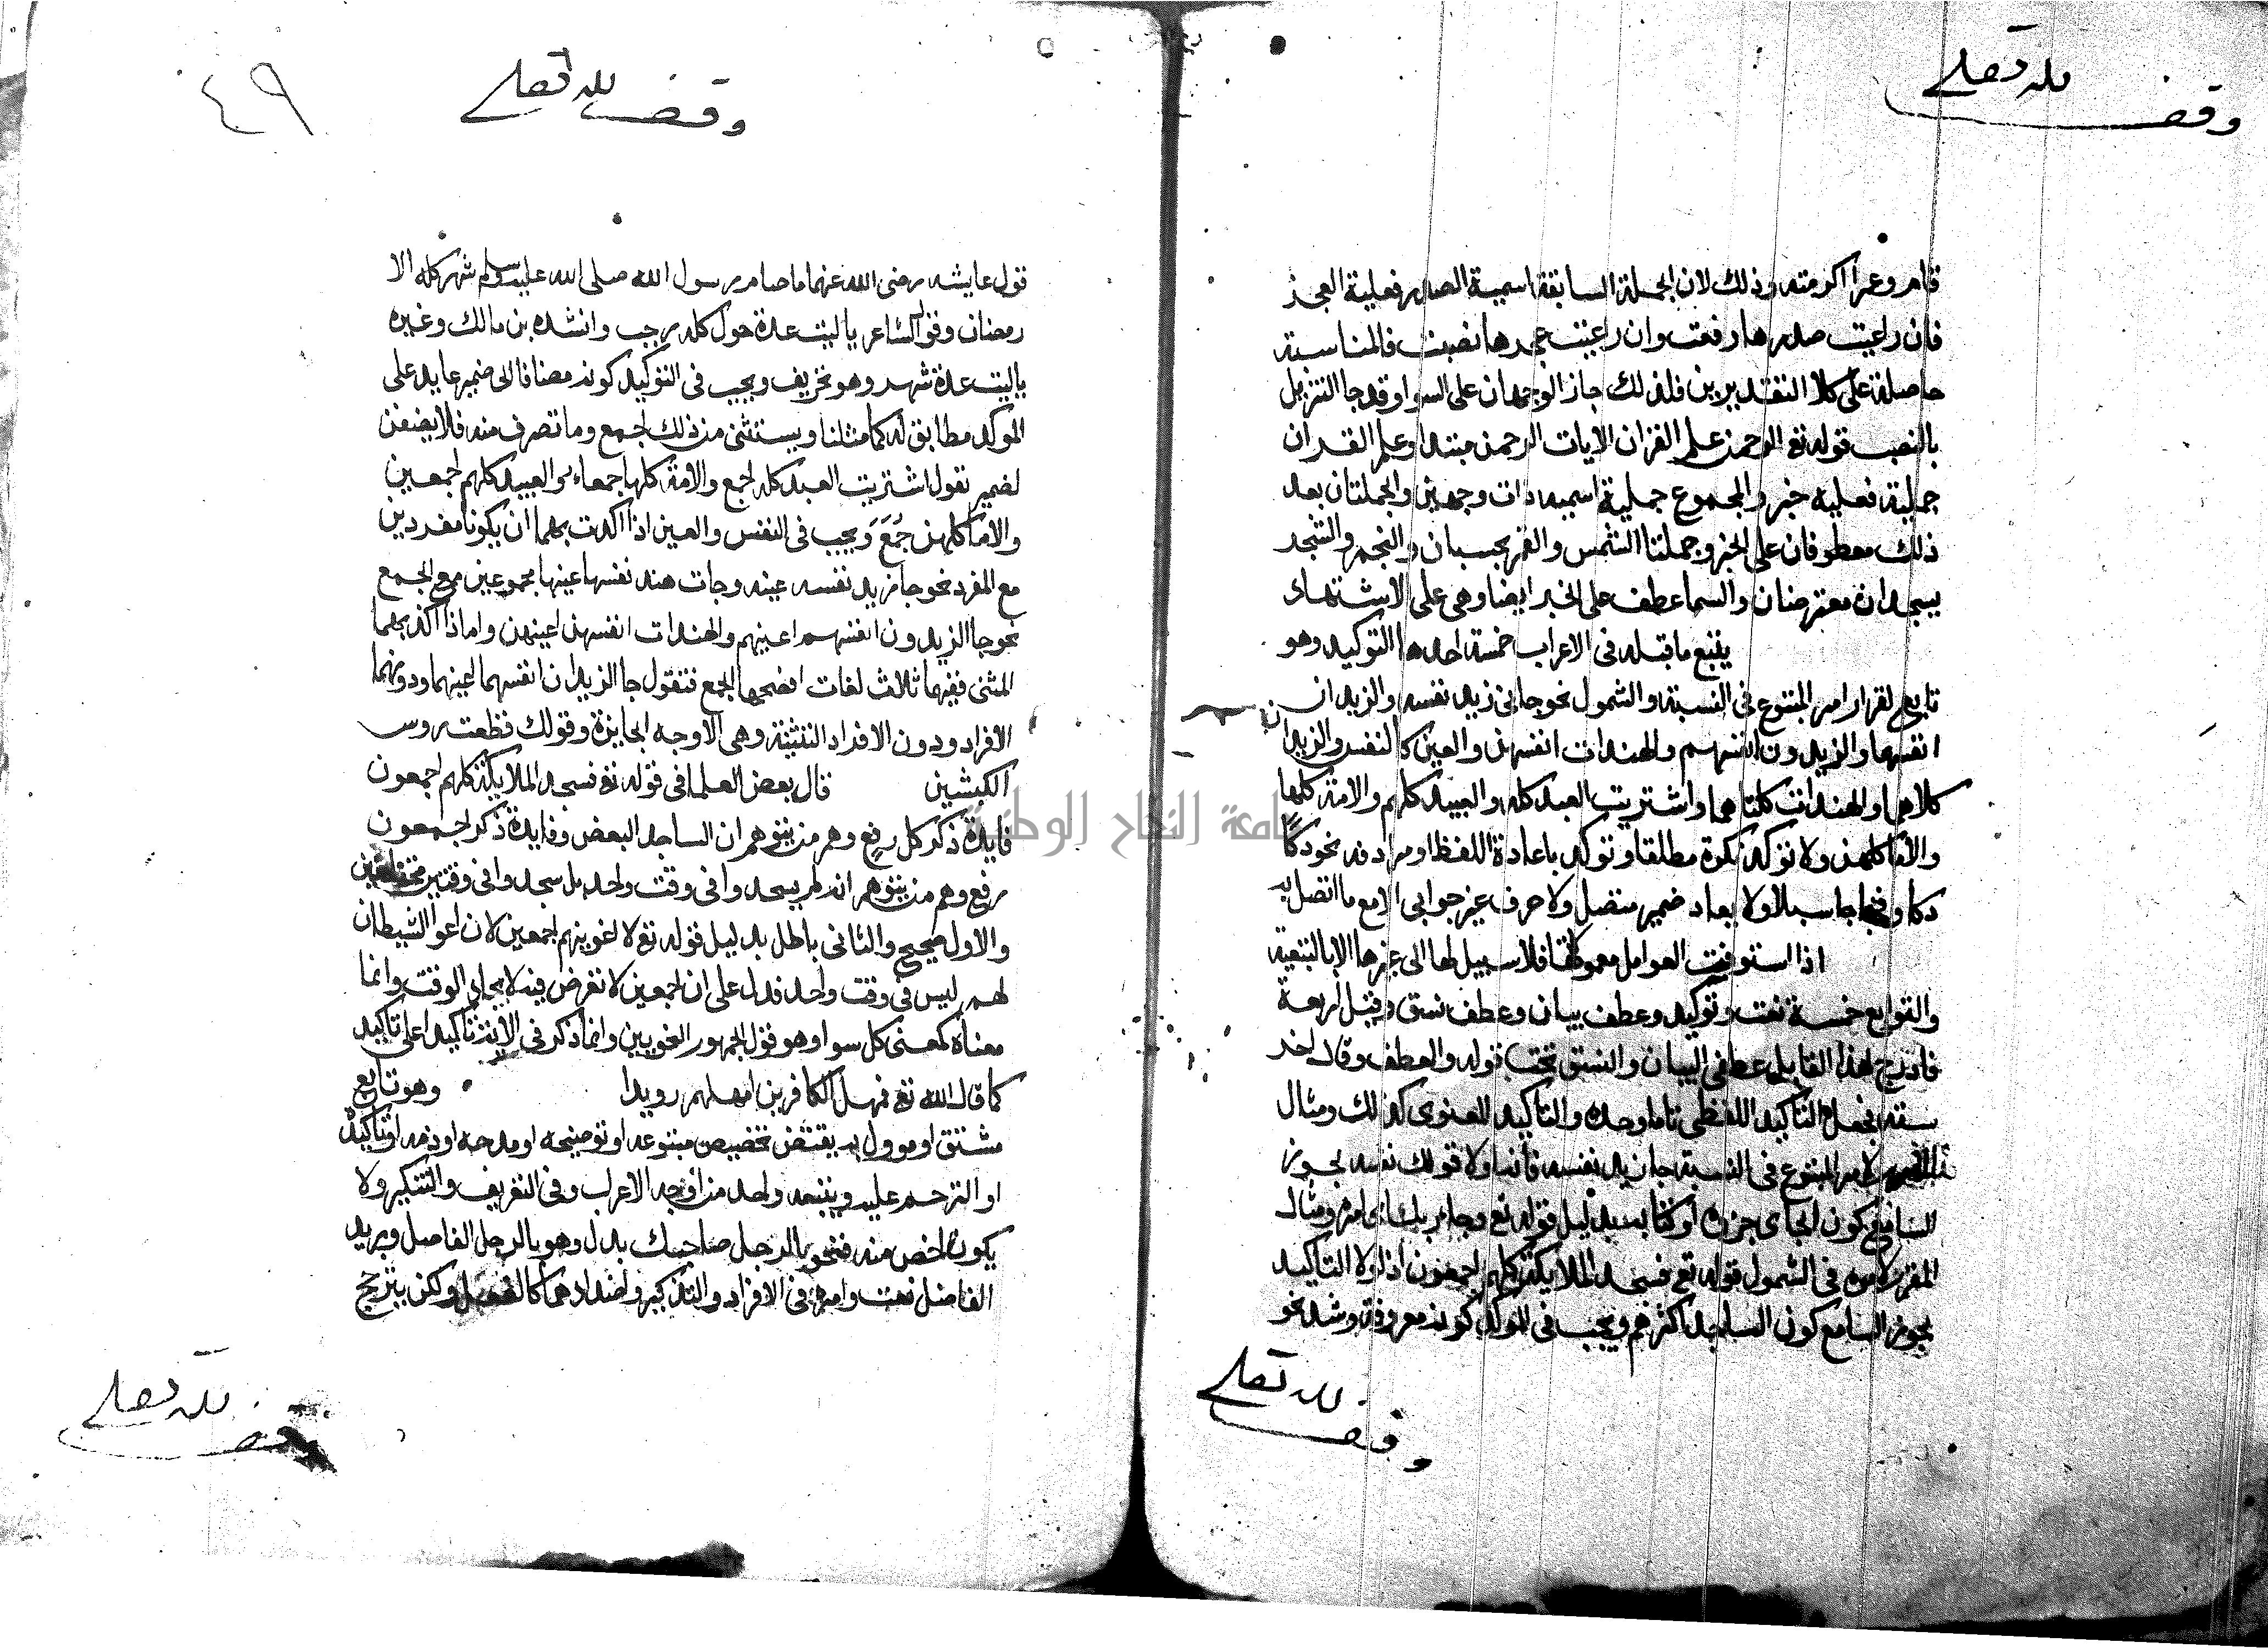 وقف لله تعالى
قام وعمرا اكرمته وذلك لان الجملة السابقة اسمية الصدر فعلية العجز
فان راعيت صدرها رفعت وان راعيت عجزها نصبت فالمناسبة
حاصلة على كلا التقديرين فلذلك جاز الوجهان على السوا وقد جا التنزيل
بالنصب قوله تع الرحمن علم القران الايات الرحمن مبتدا وعلم القران
جملية فعلية خبر والمجموع جملية اسميه ذات وجهين والجملتان بعد
ذلك معطوفان على الخبر وجملتا الشمس والقمر بحسبان والنجم والشجر
يسجدان معترضتان والسما عطف على الخبر ايضا وهى على الاستشهاد
يتبع ما قبله فى الاعراب خمسة احدها التوكيد وهو
تابع لقرار امر المتبوع فى النسبة والشمول نحو جانى زيد نفسه والزيدان
انفسهما والزيدون انفسهم والهندات انفسهن والعين كالنفس والزيدان
كلاهما والهندان كلتاهما واشتريت العبد كله والعبيد كلهم والامة كلها
والاما كلهن ولا تؤكد نكرة مطلقا وتوكد باعادة اللفظ او مرادفه نحو دكا
دكا وفجاجا سبلا ولا يعاد ضمير متصل ولا حرف غير جوابى الا مع ما اتصل به
اذا استوفت العوامل معمولاتها فلا سبيل لها الى غيرها الا بالتبعية
والتوابع خمسة نعت وتوكيد وعطف بيان وعطف نسق وقيل اربعة
فادرج هذا القايل عطفى البيان والنسق تحت قوله والعطف وقال اخر
سته بجعل التاكيد اللفظى تابعا وحده والتاكيد المعنوى كذلك ومثال
لامر المتبوع فى النسبة جا زيد نفسه فانه لولا قولك نفسه لجوز
السامع كون الجاى خبره او كتابه بدليل قوله تع وجا ربك اى امره ومثال
المقرر لامره فى الشمول قوله تع فسجد الملايكة كلهم اجمعون اذ لولا التاكيد
لجوز السامع كون الساجد اكثرهم ويجب فى الموكد كونه معروفة وشد نحو
وقف لله تعالى
وقف لله تعالى
٤٩
قول عايشه رضى الله عنها ما صام رسول الله صلى الله عليه وسلم شهر كله الا
رمضان وقول الشاعر يا ليت عدة حول كله رجب وانشده بن مالك وغيره
يا ليت عدة شهر وهو تحريف ويجب فى التوكيد كونه مضافا الى ضمير عايد على
الموكد مطابق له كما مثلنا ويستثنى من ذلك اجمع وما تصرف منه فلا يضفن
لضمير تقول اشتريت العبد كله اجمع والامة كلها جمعاء والعبيد كلهم اجمعين
والاما كلهن جُمَعَ ويجب فى النفس والعين اذا اكدت بهما ان يكونا مفردين
مع المفرد نحو جا زيد نفسه عينه وجات هند نفسها عينها مجموعين مع الجمع
نحو جا الزيدون انفسهم اعينهم والهندات انفسهن اعينهن واما اذا اكد بهما
المثنى ففيها ثلاث لغات افصحها الجمع فتقول جا الزيدان انفسهما اعينهما ودونهما
الافراد ودون الافراد التثنية وهى الاوجه الجايزة وقولك قطعت روس
الكبشين قال بعض العلما فى قوله تع فسجد الملايكة كلهم اجمعون
فايدة ذكر كل رفع وهم من يتوهم ان الساجد البعض وفايدة ذكر اجمعون
رفع وهم من يتوهم انهم لم يسجدوا فى وقت واحد بل سجدوا فى وقتين مختلفين
والاول صحيح والثانى باطل بدليل قوله تع لاغوينهم اجمعين لان اغوا الشيطان
لهم ليس فى وقت واحد فدل على ان اجمعين لا تعرض فيه لاتحاد الوقت وانما
معناه كمعنى كل سوا وهو قول الجمهور النحويين وانما ذكر فى الاية تاكيدا على تاكيد
كما قال الله تع فمهل الكافرين امهلهم رويدا وهو تابع
مشتق او موول به يقتضى تخصيص متبوعه او توضيحه او مدحه او ذمه او تاكيده
او الترحم عليه ويتبعه واحد من اوجه الاعراب وفى التعريف والتنكير ولا
يكون اخص منه فنحو بالرجل صاحبك بدل وهو بالرجل الفاصل وبريد
الفاضل نعت وامره فى الافراد والتذكير واضدادهما كالفعل ولكن يترجح
وقف لله تعالى
جامعة النجاح الوطنية